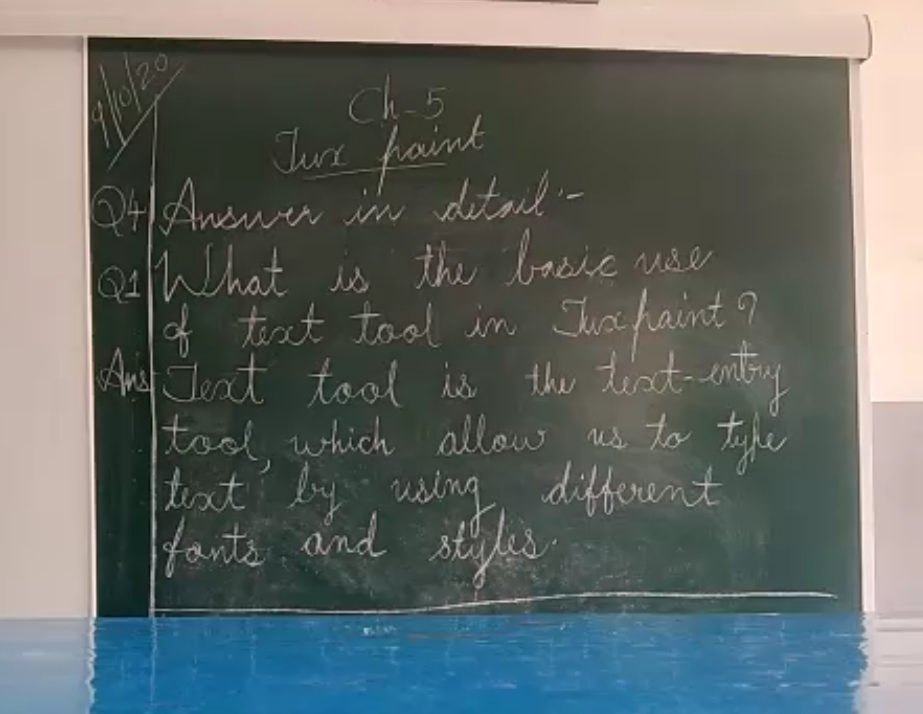 9/10/20
Ch-5
Tux paint
Q4 Answer in detail:-
Q1 What is the basic use
of text tool in Tuxpaint?
Ans Text tool is the text-entry
tool, which allow us to type
text by using different
fonts and styles.